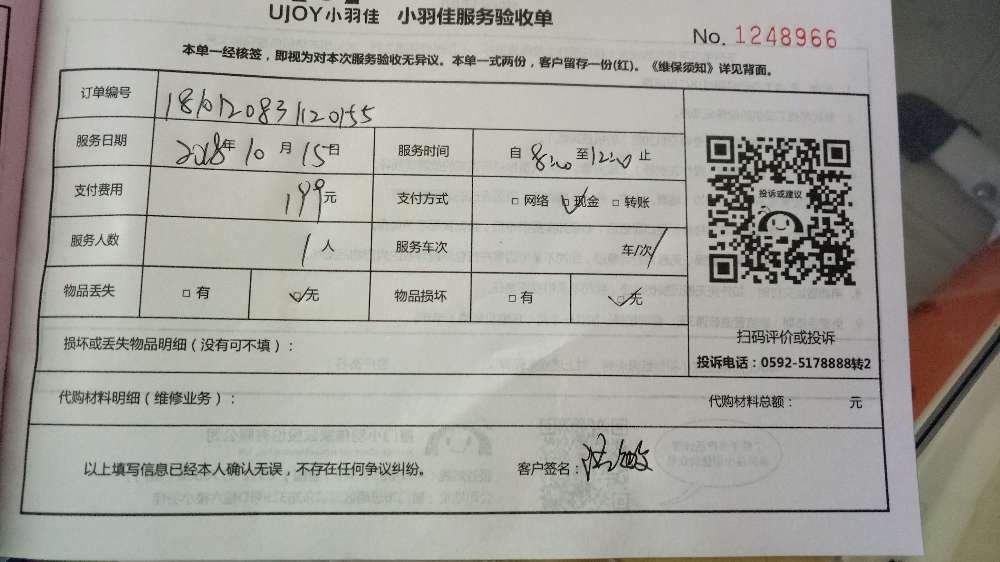 UJOY小羽佳 小羽佳服务验收单
No. 1248966
本单一经核签，即视为对本次服务验收无异议。本单一式两份，客户留存一份(红)。《维保须知》详见背面。
订单编号
服务日期 2018年10月15日 服务时间 自8:00至12:00止
支付费用 199元 支付方式 □网络 ☑现金 □转账
服务人数 1人 服务车次 车/次
投诉或建议
物品丢失 □有 ☑无 物品损坏 □有 ☑无
扫码评价或投诉
损坏或丢失物品明细（没有可不填）：
投诉电话：0592-5178888转2
代购材料明细（维修业务）： 代购材料总额： 元
以上填写信息已经本人确认无误，不存在任何争议纠纷。 客户签名：